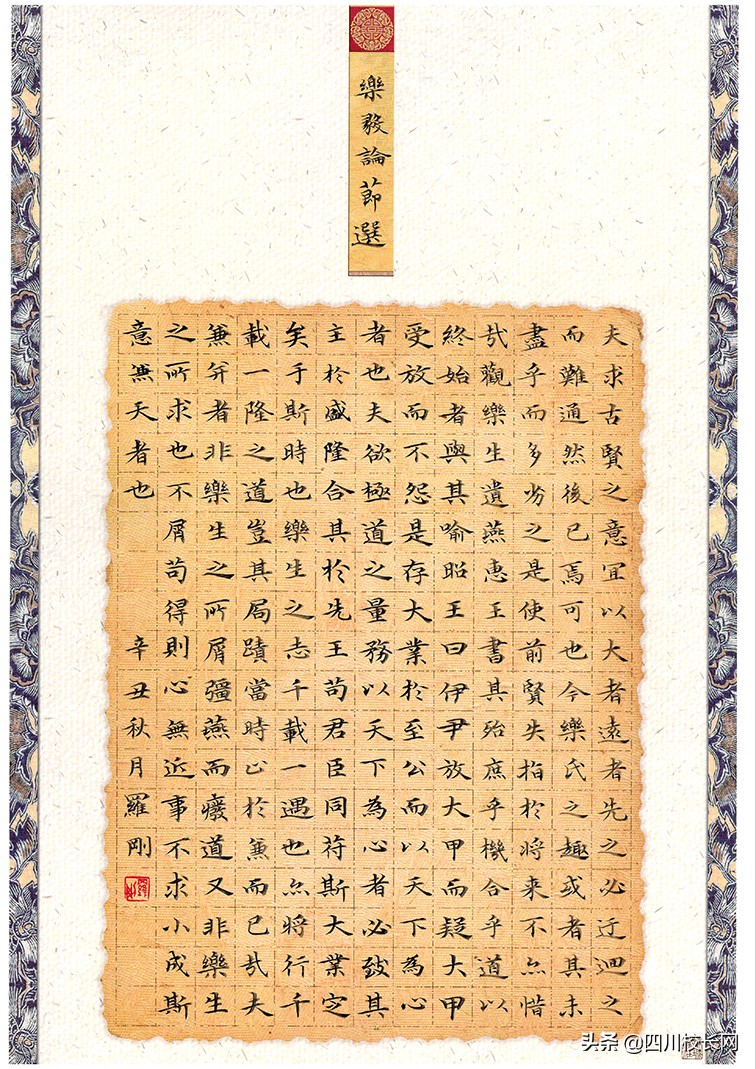 樂毅論節選
夫求古賢之意宜以大者遠者先之必迂迴之
而難通然後已焉可也今樂氏之趣或者其未
盡乎而多劣之是使前賢失指於將来不亦惜
哉觀樂生遺燕惠王書其殆庶乎機合乎道以
終始者與其喻昭王曰伊尹放大甲而疑大甲
受放而不怨是存大業於至公而以天下為心
者也夫欲極道之量務以天下為心者必致其
主於盛隆合其於先王苟君臣同苻斯大業定
矣于斯時也樂生之志千載一遇也亦將行千
載一隆之道豈其局蹟當時止於兼而已哉夫
兼并者非樂生之所屑彊燕而癈道又非樂生
之所求也不屑苟得則心無近事不求小成斯
意兼天者也 辛丑秋月羅剛
头条 @四川校长网